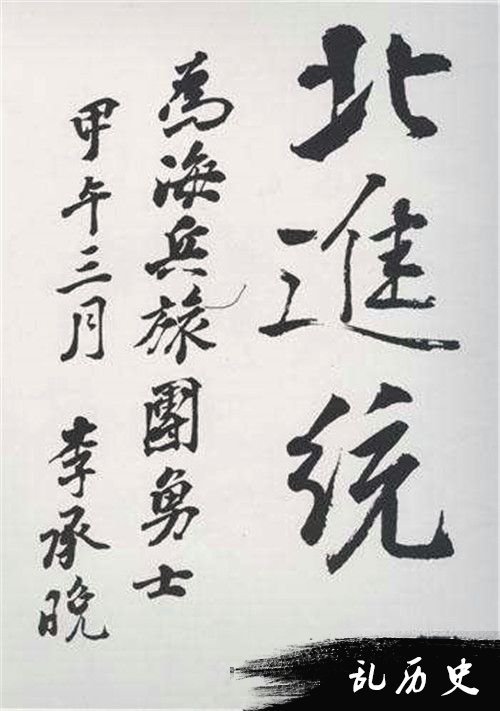 北進統
為海兵旅團勇士
甲午三月 李承晚
乱历史